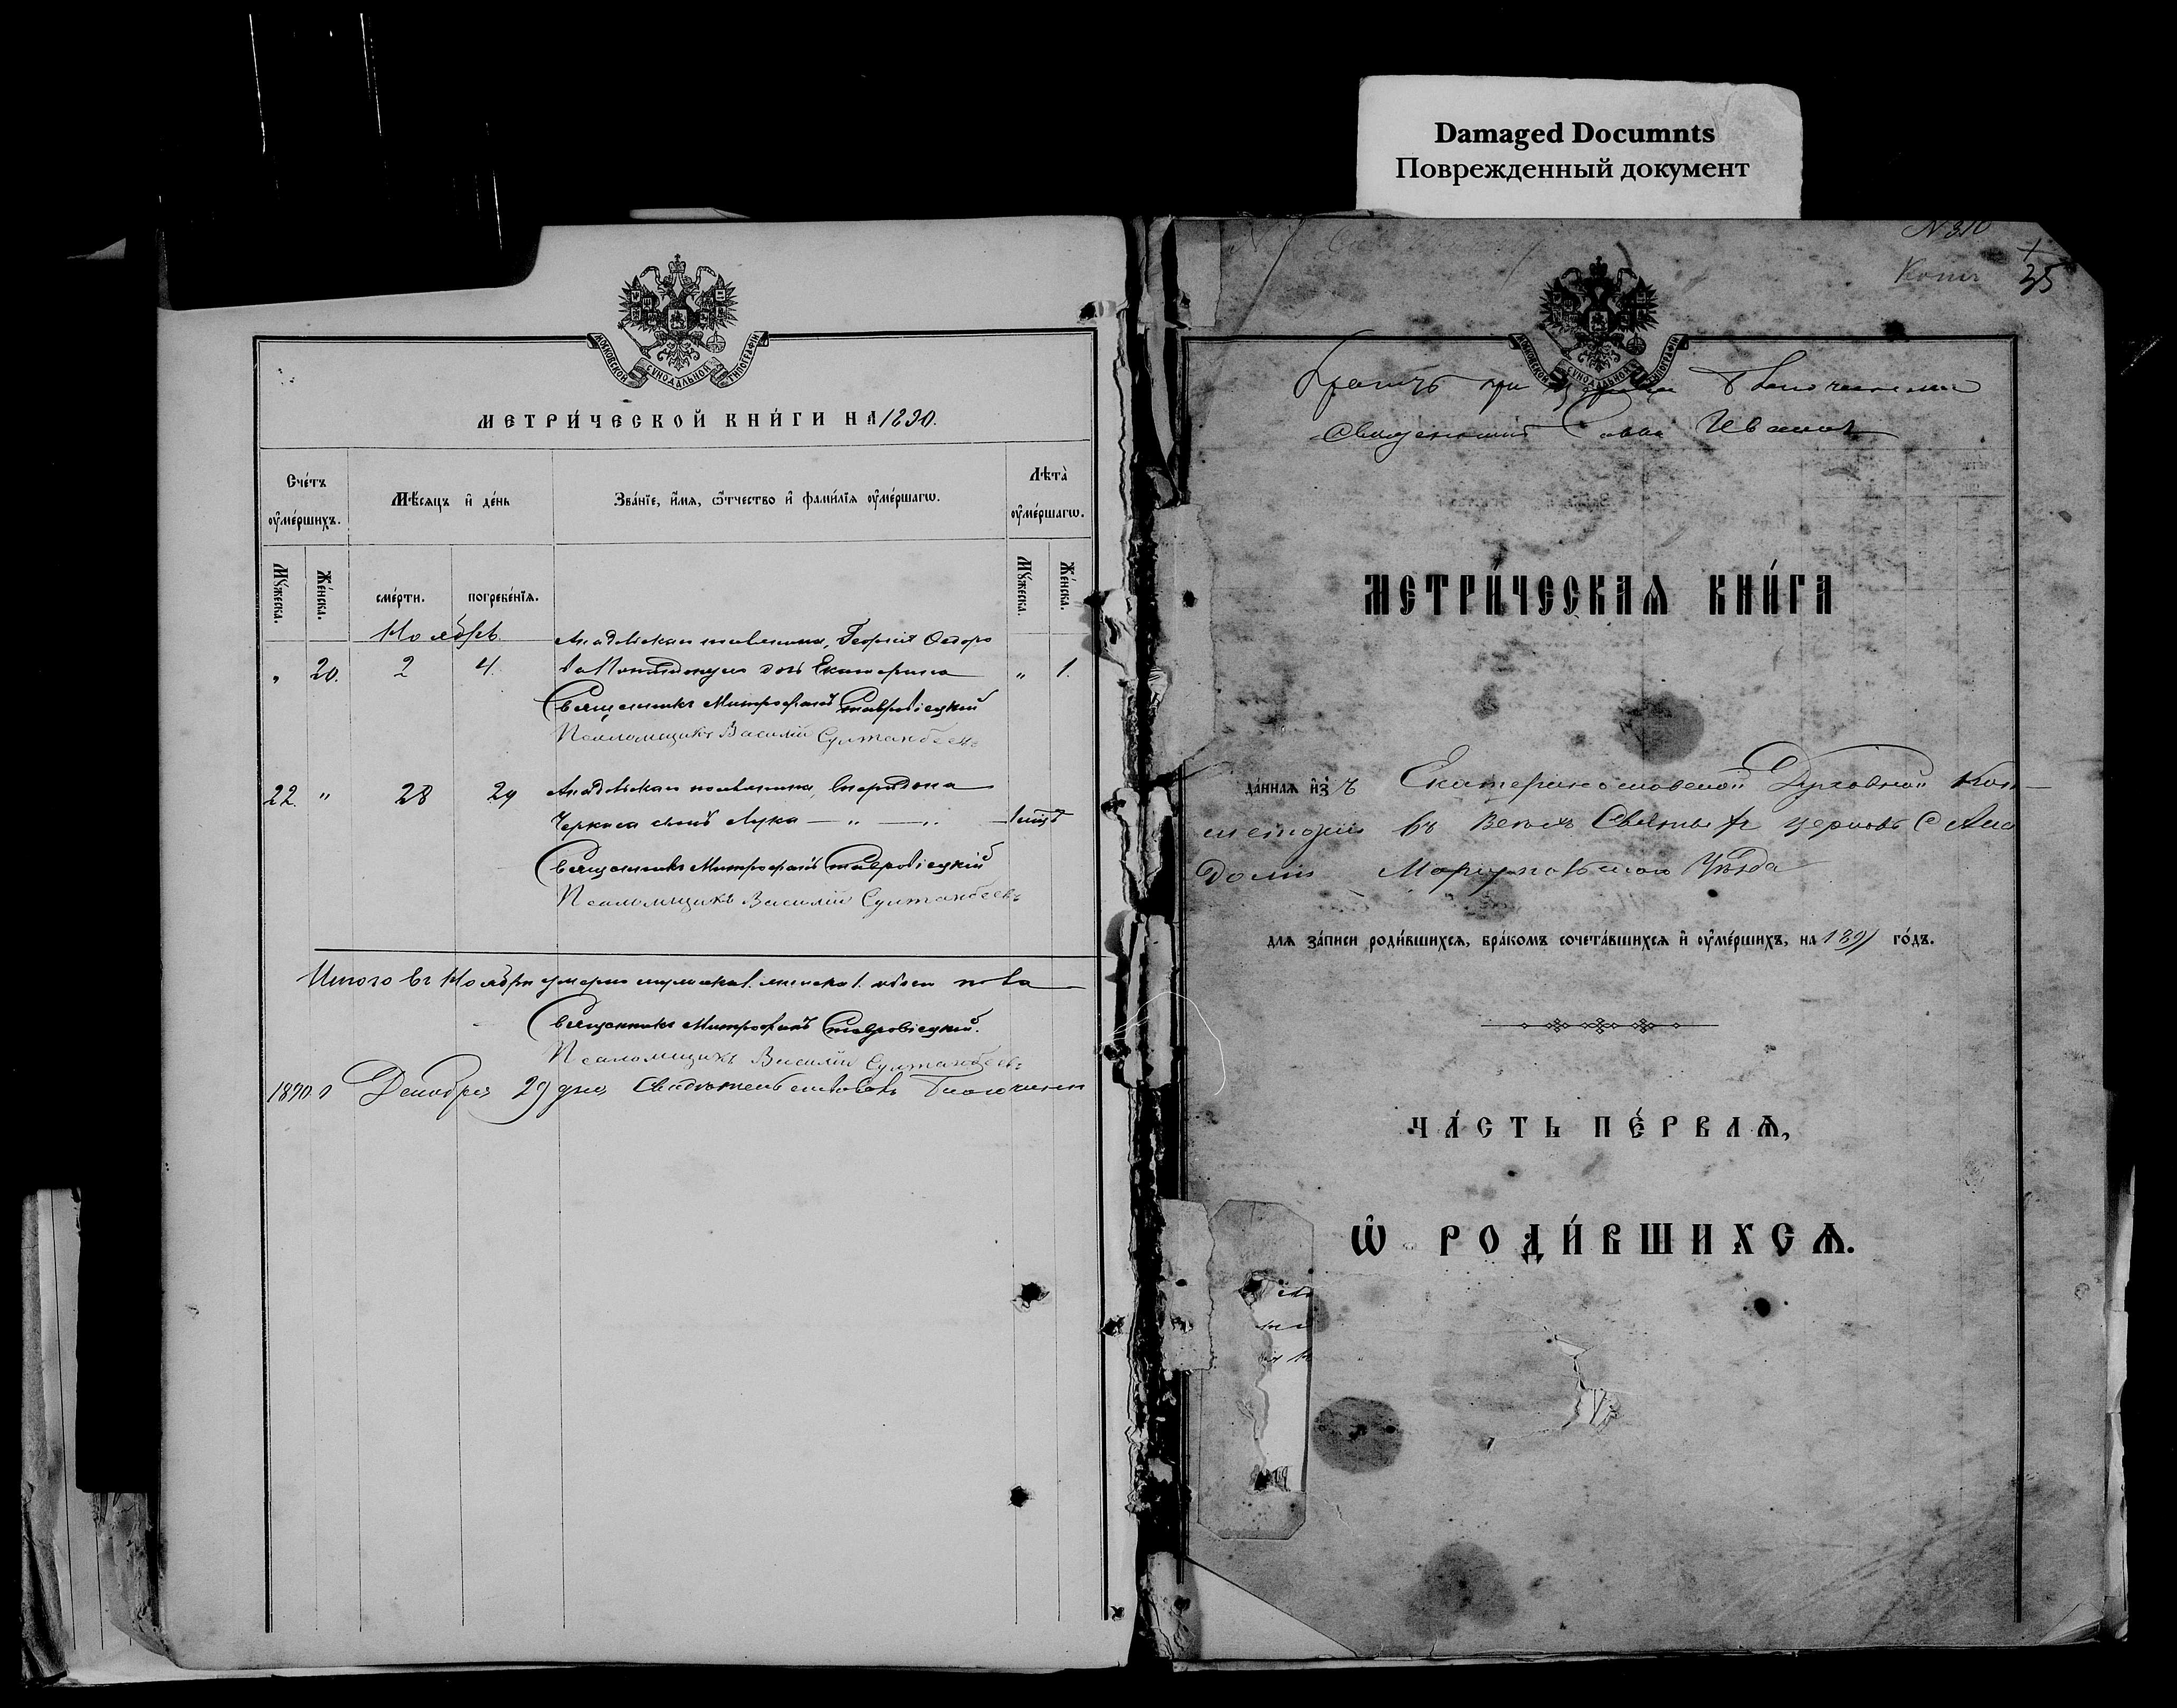 Damaged Documnts
Поврежденный документ
МОСКОВСКОЙ СѴНОДАЛЬНОЙ ТИПОГРАФІИ
МЕТРИ́ЧЕСКОЙ КНИ́ГИ НА 1890.
Сче́тъ ᲂу҆ме́ршихъ.
Мѣ́сяцъ и҆ де́нь
Зва́нїе, и҆́мѧ, ѻ҆́тчество и҆ фами́лїѧ ᲂу҆ме́ршагѡ.
Лѣта̀ ᲂу҆ме́ршагѡ.
Мꙋ́жеска.
Же́нска.
сме́рти.
погребе́нїѧ.
Мꙋ́жеска.
Же́нска.
Ноябрь
Анадольскаго поселянина, Георгія Ѳеодоро
" 20. 2 4. дочь Екатерина " 1.
Священникъ Митрофанъ Ставровіецкій
Псаломщикъ Василій Султанбеевъ
22. " 28 29 Анадольскаго поселянина, Спиридона
Черкеса сынъ Лука — " — "
Священникъ Митрофанъ Ставровіецкій
Псаломщикъ Василій Султанбеевъ
Итого въ Ноябрѣ умерло мужеска 1. женска 1. обоего пола
Священникъ Митрофанъ Ставровіецкій.
Псаломщикъ Василій Султанбеевъ
1890 г Декабря 29 дня Свидѣтельствовалъ Благочинный
N 310
Копія
35
МОСКОВСКОЙ СѴНОДАЛЬНОЙ ТИПОГРАФІИ
Благочинный
Священникъ Савва Ивановъ
МЕТРИ́ЧЕСКАѦ КНИ́ГА
да́ннаѧ и҆з̾ъ Екатеринославской Духовной Кон-
систоріи въ Всѣхъ Святыхъ церковь С Ана
доліи Маріупольскаго Уѣзда
длѧ за́писи роди́вшихсѧ, бра́комъ сочета́вшихсѧ и҆ ᲂу҆ме́ршихъ, на 1891 го́дъ.
ЧА́СТЬ ПЕ́РВАѦ,
Ѡ҆ РОДИ́ВШИХСѦ.